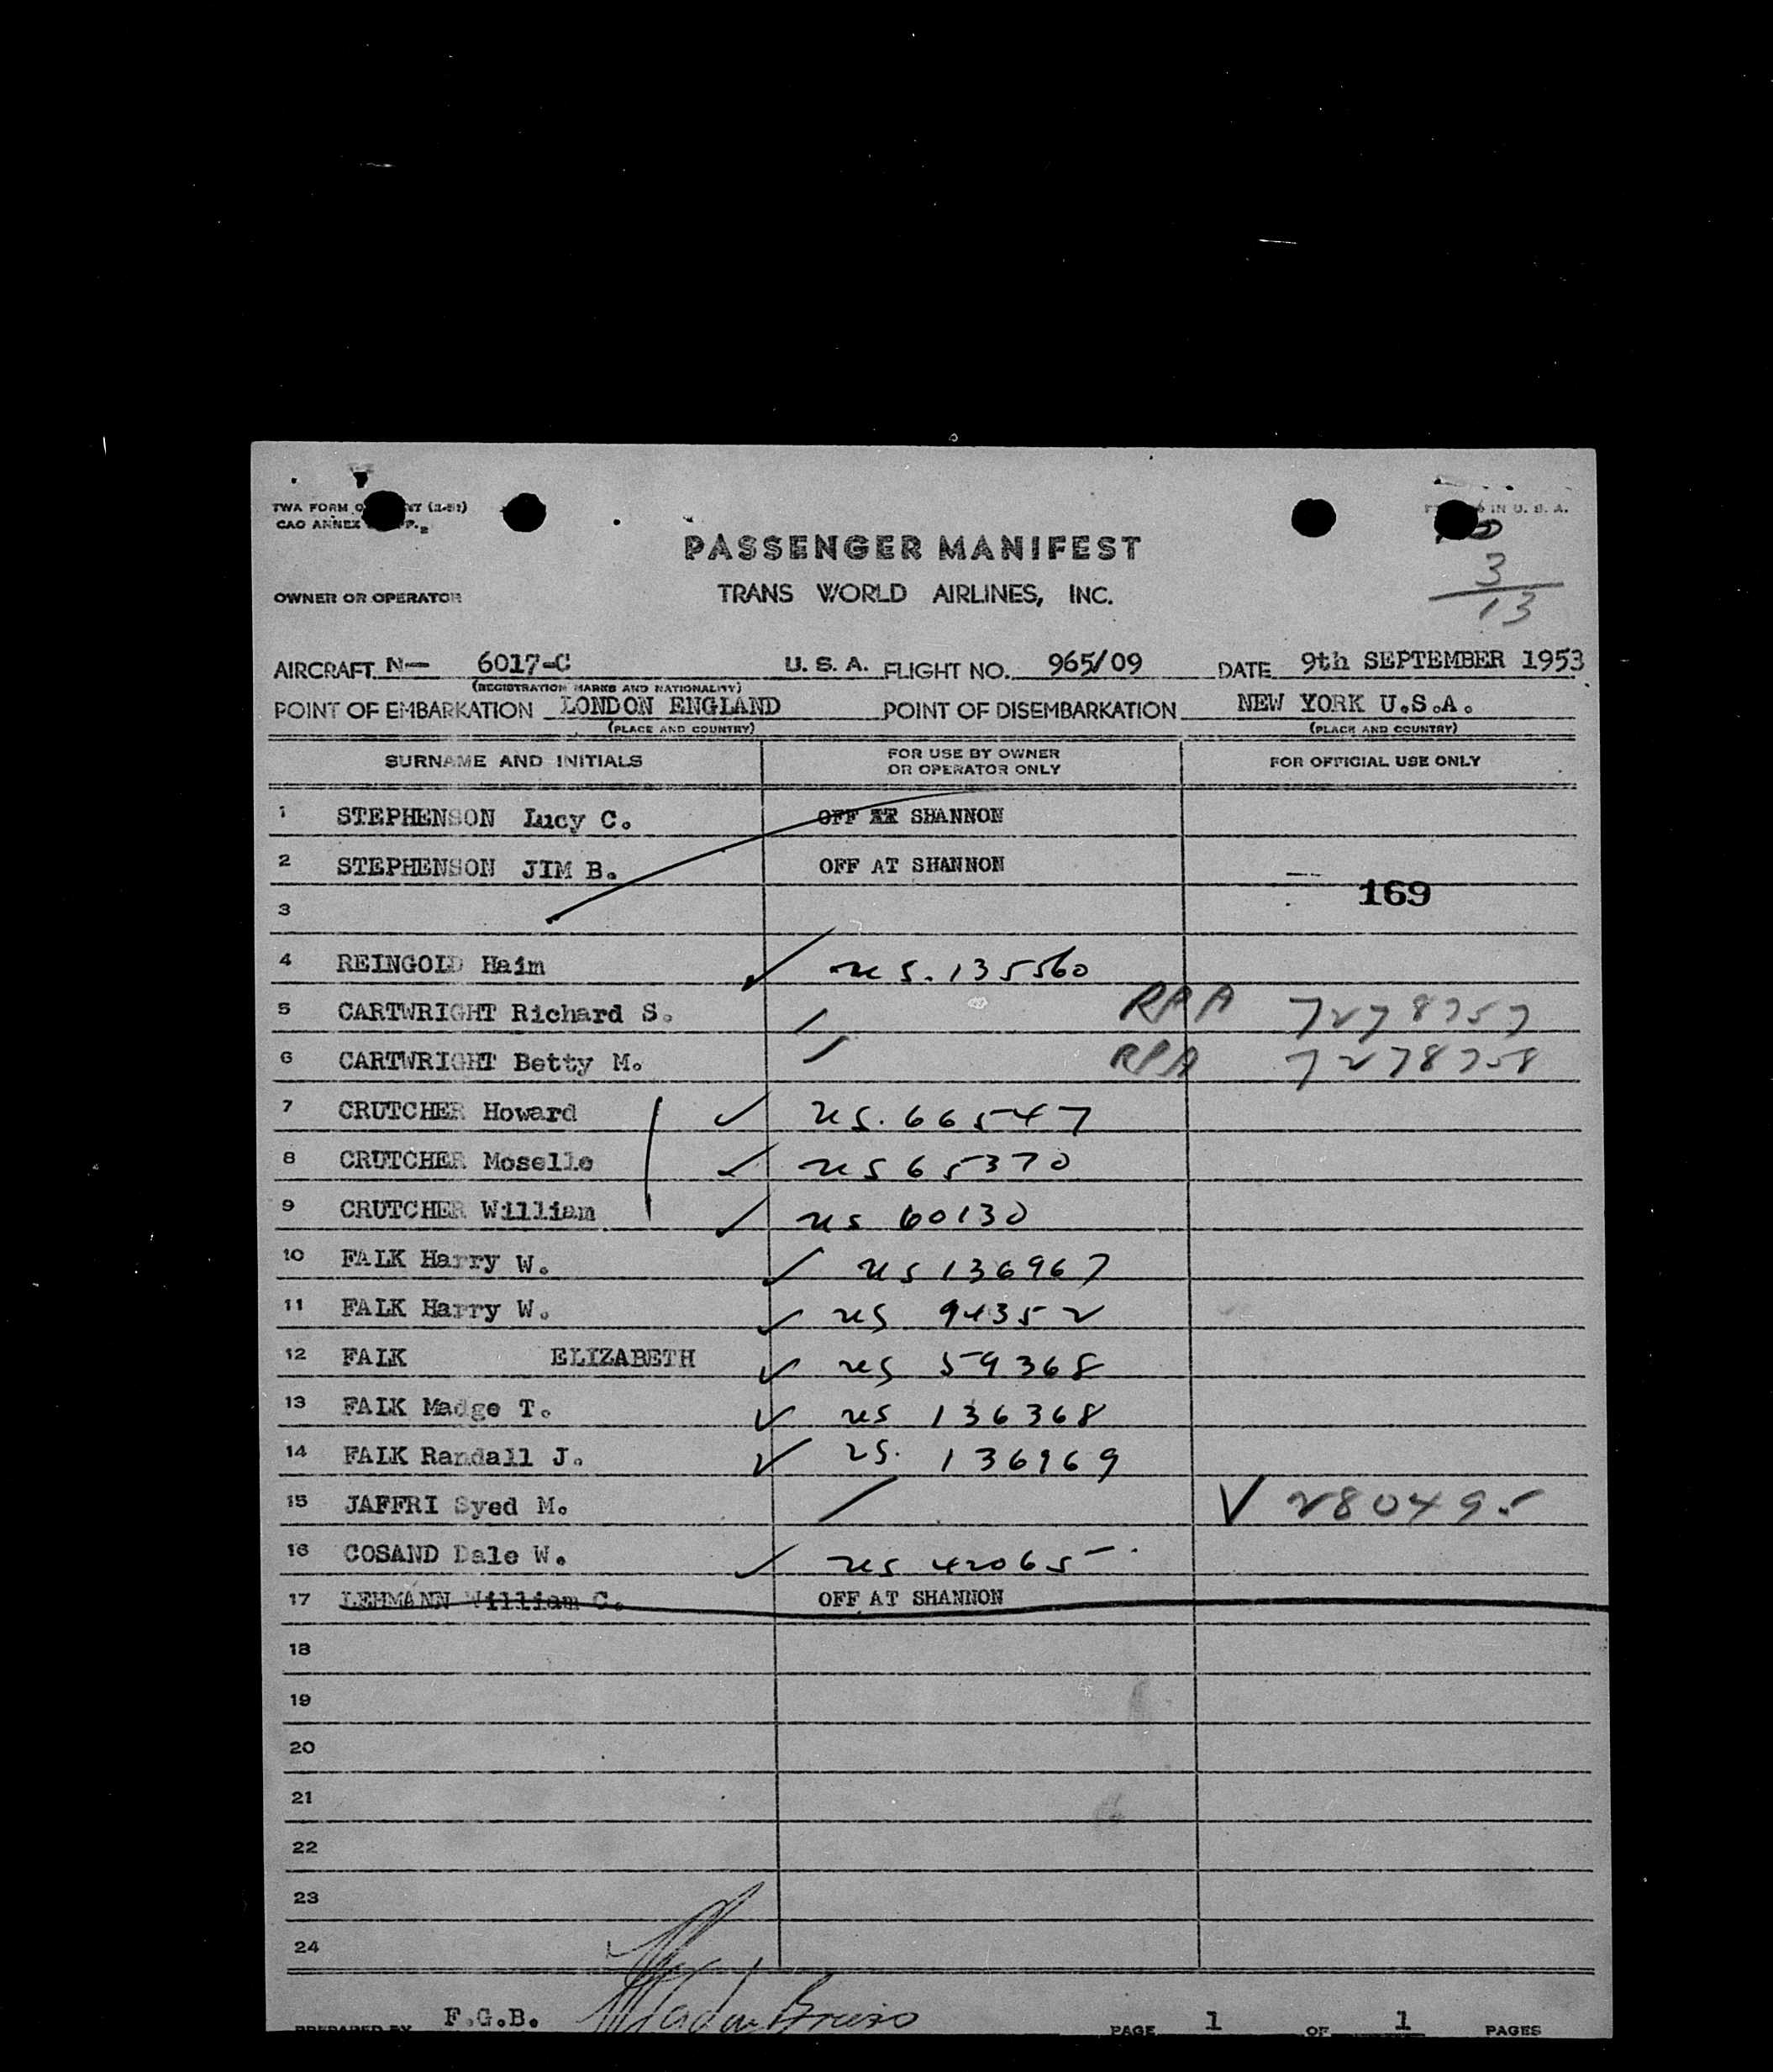 TWA FORM
CAO ANNEX
IN U. S. A.
PASSENGER MANIFEST
3
13
OWNER OR OPERATOR TRANS WORLD AIRLINES, INC.
AIRCRAFT N— 6017-C U. S. A. FLIGHT NO. 965/09 DATE 9th SEPTEMBER 1953
(REGISTRATION MARKS AND NATIONALITY)
POINT OF EMBARKATION LONDON ENGLAND POINT OF DISEMBARKATION NEW YORK U.S.A.
(PLACE AND COUNTRY) (PLACE AND COUNTRY)
SURNAME AND INITIALS FOR USE BY OWNER OR OPERATOR ONLY FOR OFFICIAL USE ONLY
1 STEPHENSON Lucy C. OFF AT SHANNON
2 STEPHENSON JIM B. OFF AT SHANNON
169
3
4 REINGOLD Haim us. 135560
5 CARTWRIGHT Richard S. RPA 7278757
6 CARTWRIGHT Betty M. RPA 7278758
7 CRUTCHER Howard us. 66547
8 CRUTCHER Moselle us 65370
9 CRUTCHER William us 60130
10 FALK Harry W. us 136967
11 FALK Harry W. us 94352
12 FALK ELIZABETH us 59368
13 FALK Madge T. us 136368
14 FALK Randall J. us. 136969
15 JAFFRI Syed M. V 280495
16 COSAND Dale W. us 42065
17 LEHMANN William C. OFF AT SHANNON
18
19
20
21
22
23
24
PREPARED BY F.G.B. PAGE 1 OF 1 PAGES